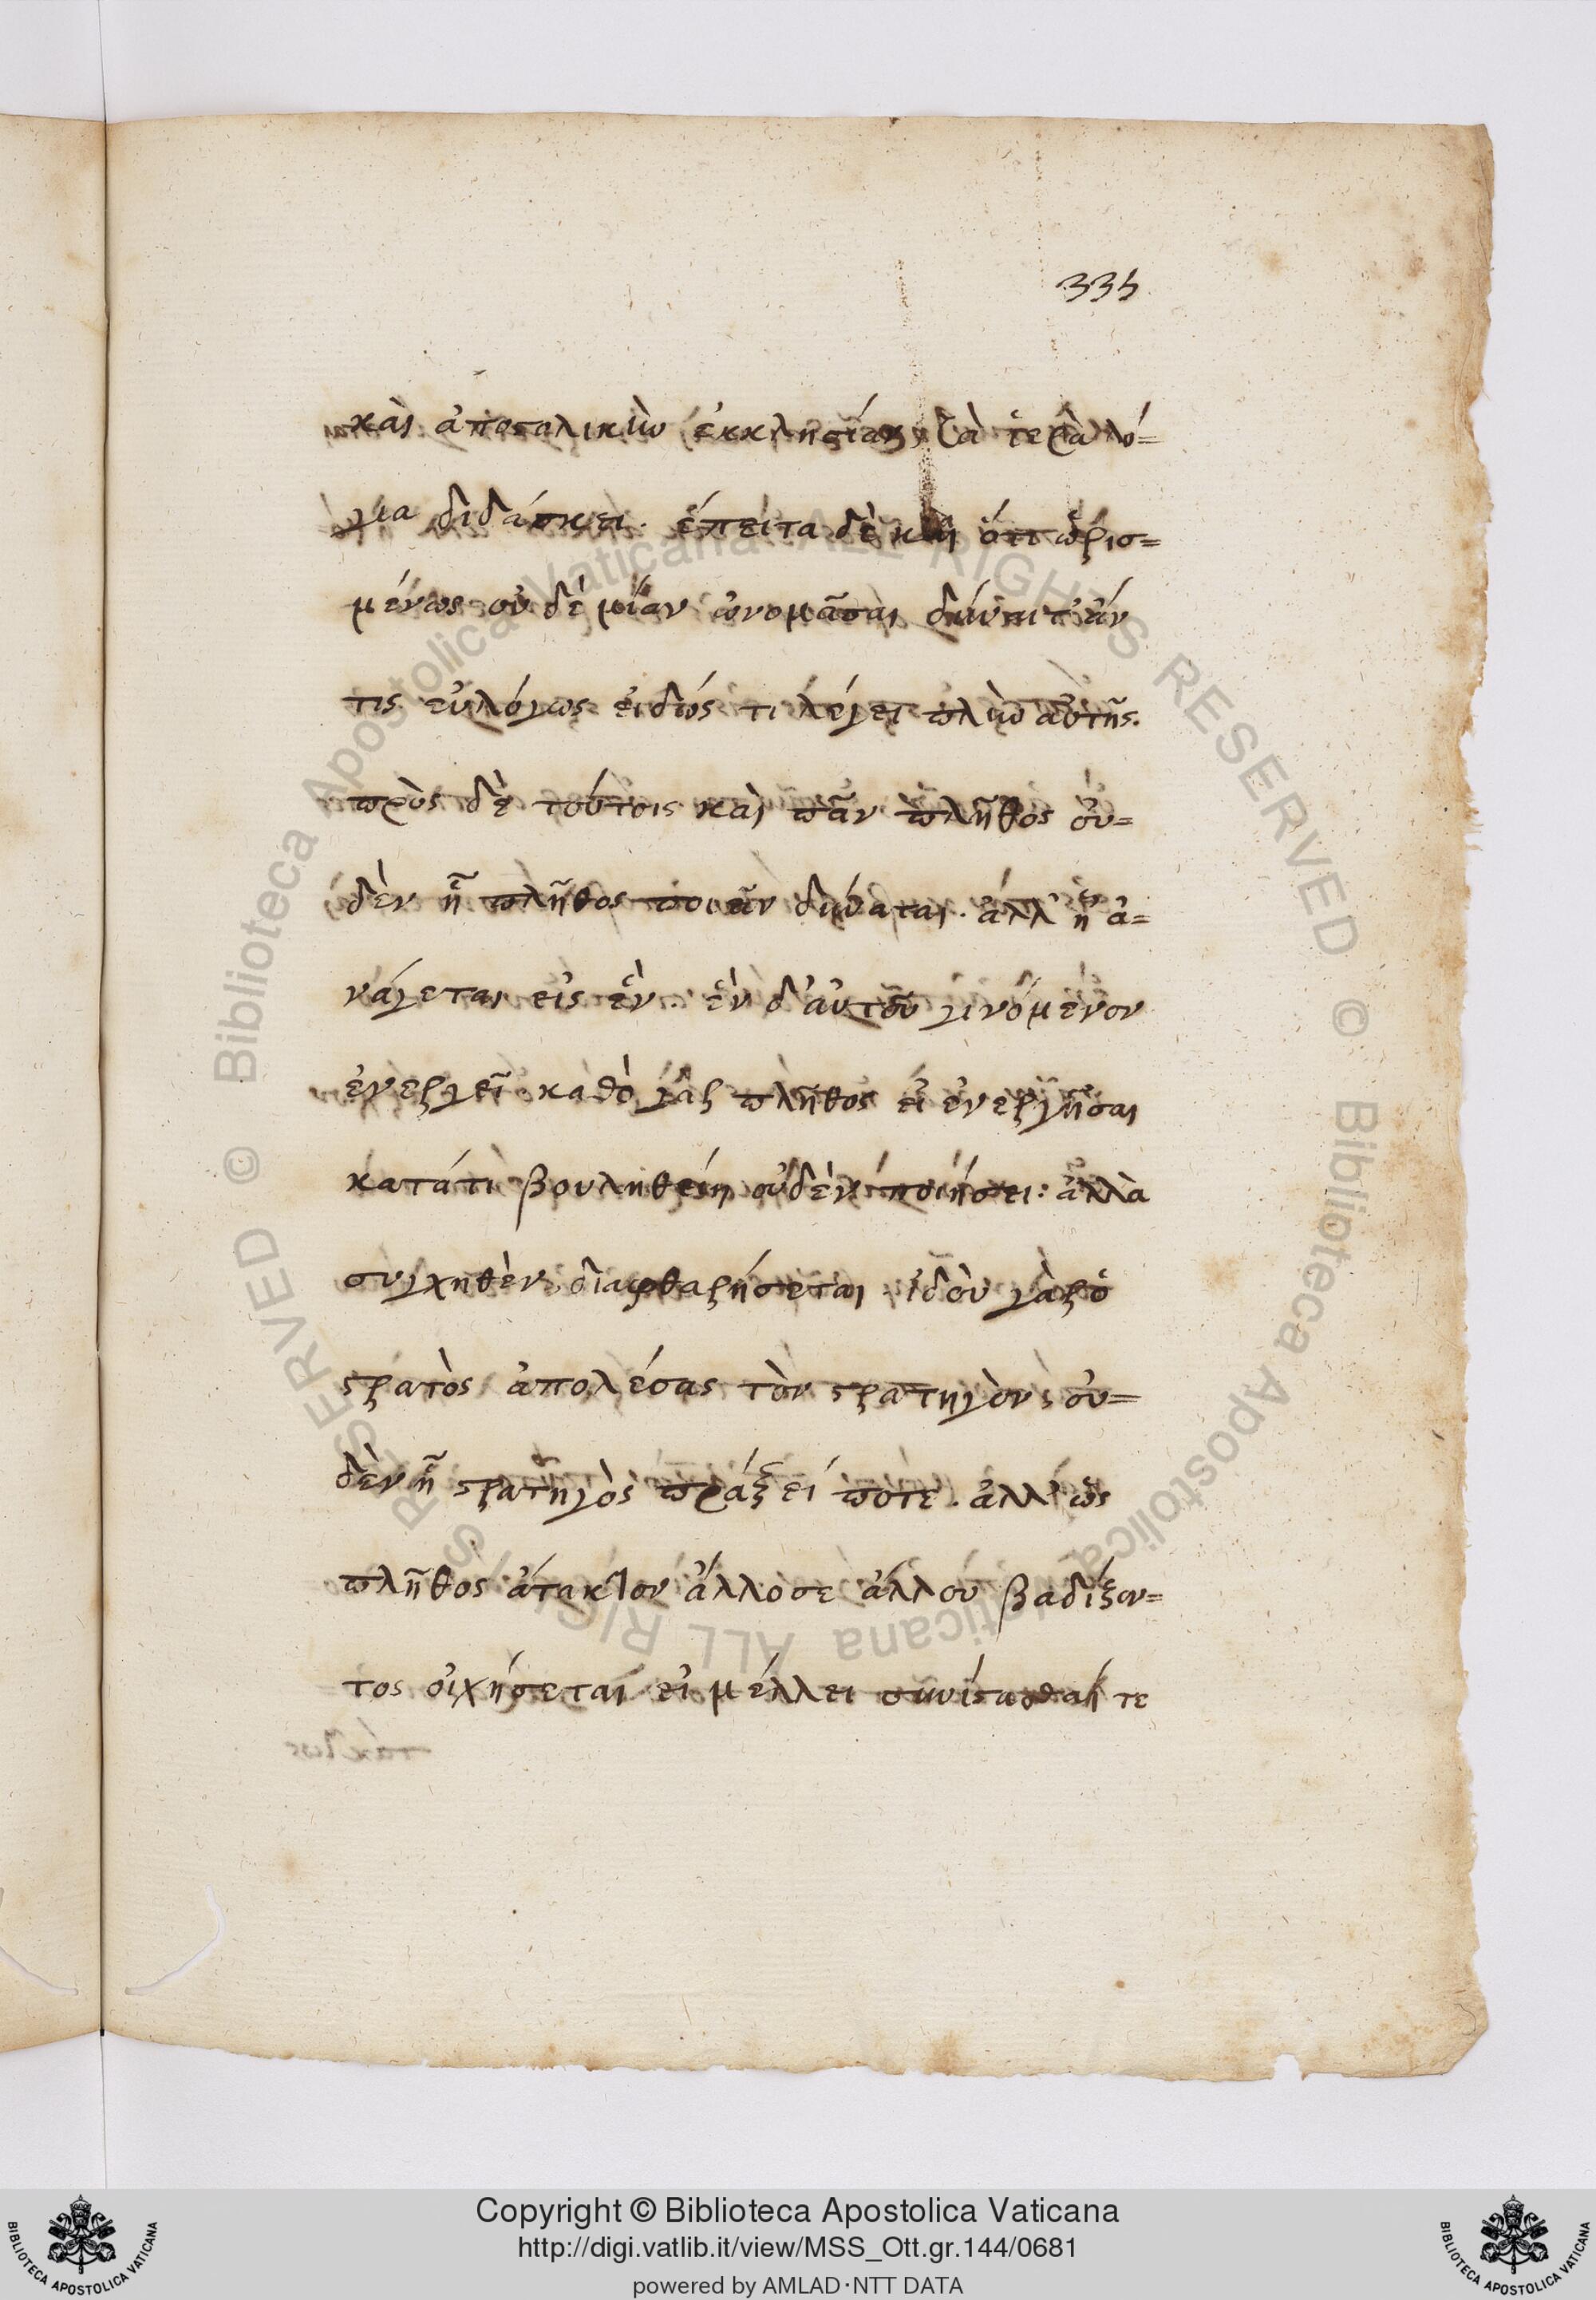 335
καὶ ἀποστολικὴν ἐκκλησίαν, τὰ ἱερὰ λό=
για διδάσκει. ἔπειτα δὲ καὶ ὅτι ὡρισ=
μένως οὐδεμίαν ὀνομᾶσαι δύναιτ' ἄν
τις εὐλόγως εἰδώς τι λέγει πλὴν αὐτῆς.
πρὸς δὲ τούτοις καὶ πᾶν πλῆθος οὐ=
δὲν ἧ πλῆθος ποιεῖν δύναται. ἀλλ' ἢ ἀ=
νάγεται εἰς ἕν. ἓν δ' αὐτοῦ γινόμενον
ἐνεργεῖ καθὸ γὰρ πλῆθος εἰ ἐνεργῆσαι
κατά τι βουληθείη οὐδὲν ποιήσει: ἀλλὰ
συγχηθὲν διαφθαρήσεται ἰδοὺ γὰρ ὁ
στρατὸς ἀπολέσας τὸν στρατηγὸν, οὐ=
δὲν ἧ στρατηγὸς πράξει ποτε. ἀλλ' ὡς
πλῆθος ἄτακτον ἄλλοσε ἄλλου βαδίζον=
τος οἰχήσεται εἰ μέλλει συνίστασθαί τε
Copyright © Biblioteca Apostolica Vaticana
http://digi.vatlib.it/view/MSS_Ott.gr.144/0681
powered by AMLAD·NTT DATA